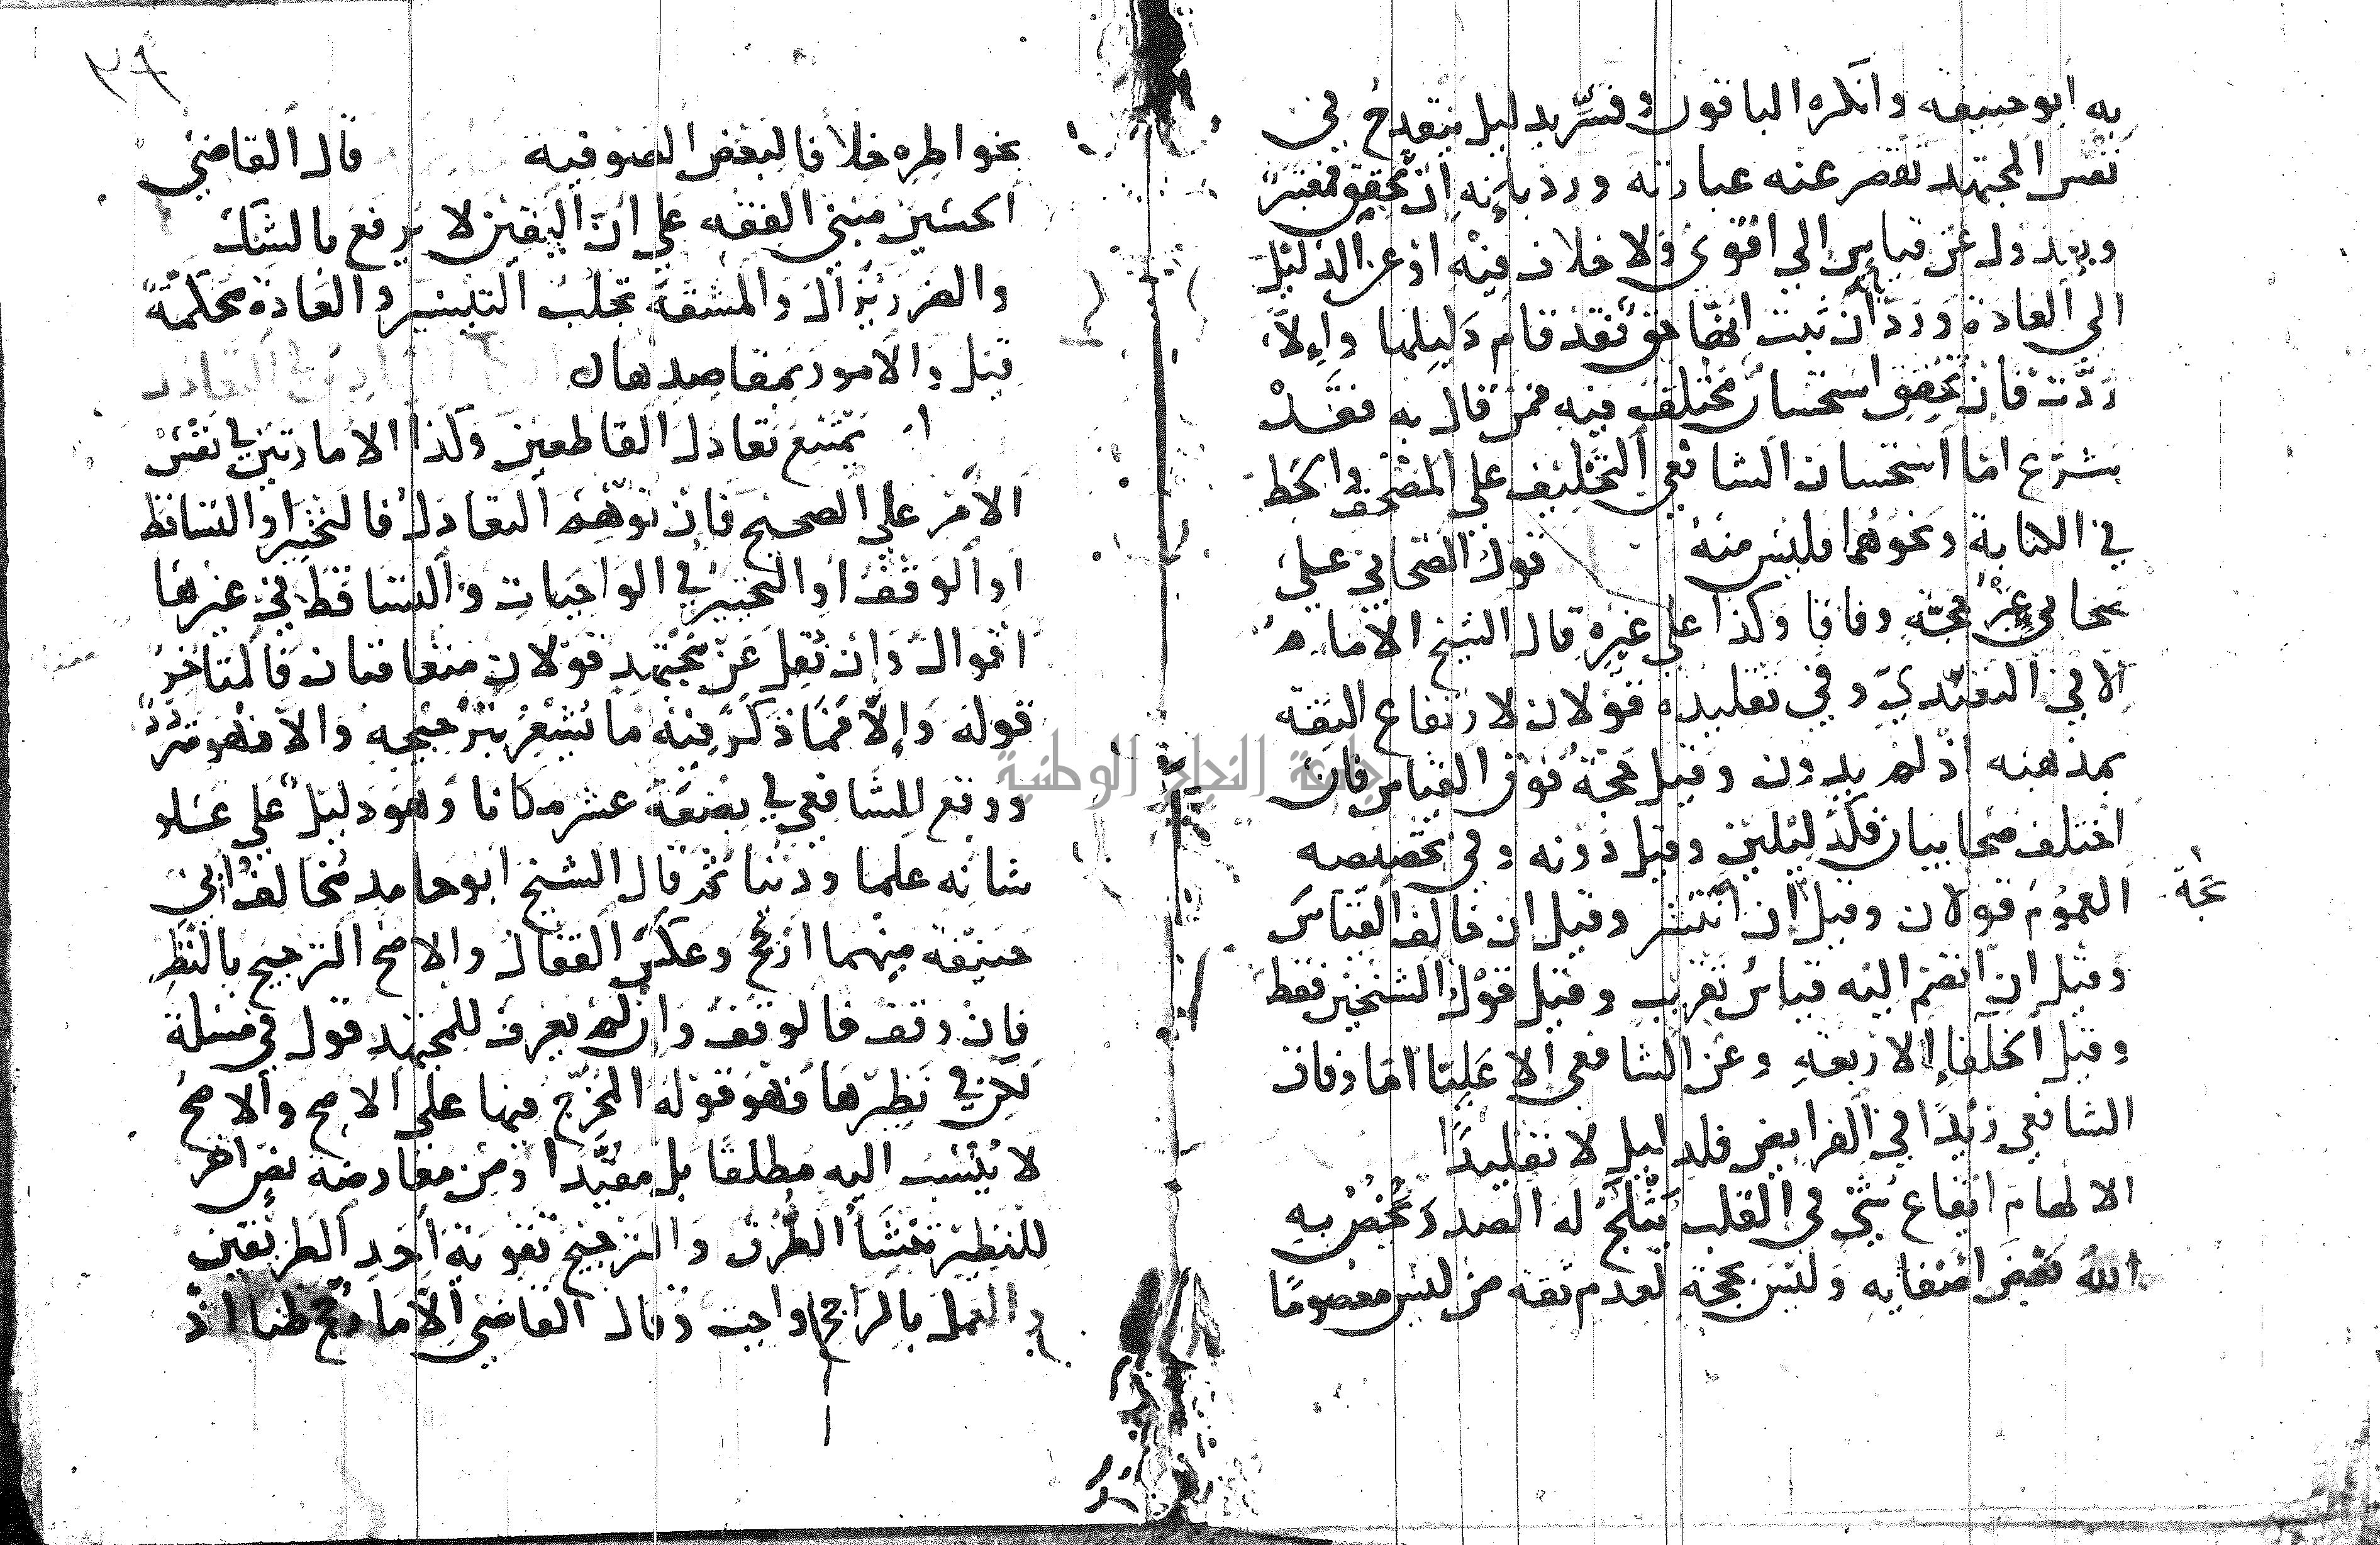 به ابو حنيفة وانكره الباقون وفسر بدليل ينقدح في
نفس المجتهد تقصر عنه عبارته ورد بانه ان تحقق فمعتبر
وبعدول عن قياس الي اقوي ولا خلاف فيه او عن الدليل
الي العادة ورد ان ثبت انها حق فقد قام دليلها والا
ردت فان تحقق استحسان مختلف فيه فمن قال به فقد
شرع اما استحسان الشافعي التحليف علي المصحف والحط
في الكتابة ونحوهما فليس منه قول الصحابي علي
صحابي غير حجة وفاقا وكذا علي غيره قال الشيخ الامام
الا في التعبدي وفي تقليده قولان لارتفاع الثقة
بمذهبه اذ لم يدون وقيل حجة فوق القياس فان
اختلف صحابيان فكدليلين وقيل دونه وفي تخصيصه
العموم قولان وقيل ان انتشر وقيل ان خالف القياس
وقيل ان انضم اليه قياس تقريب وقيل قول الشيخين فقط
وقيل الخلفاء الاربعة وعن الشافعي الا عليا اما وفاق
الشافعي زيدا في الفرايض فلدليل لا تقليدا
الالهام ايقاع شي في القلب يثلج له الصدر يخص به
الله بعض اصفيايه وليس بحجة لعدم ثقة من ليس معصوما
بخواطره خلافا لبعض الصوفية قال القاضي
الحسين مبني الفقه علي ان اليقين لا يرفع بالشك
والضرر يزال والمشقة تجلب التيسير والعادة محكمة
قيل والامور بمقاصدها
يمتنع تعادل القاطعين وكذا الامارتين في نفس
الامر علي الصحيح فان توهم التعادل فالتخيير او التساقط
او الوقف او التخيير في الواجبات والتساقط في غيرها
اقوال وان نقل عن مجتهد قولان متعاقبان فالمتاخر
قوله والا فما ذكر فيه ما يشعر بترجيحه والا فهو متردد
ووقع للشافعي في بضعة عشر مكانا وهو دليل علي علو
شانه علما ودينا ثم قال الشيخ ابو حامد مخالف ابي
حنيفة منهما ارجح وعكس القفال والاصح الترجيح بالنظر
فان وقف فالوقف وان لم يعرف للمجتهد قول في مسلة
لكن في نظيرها فهو قوله المخرج فيها علي الاصح والاصح
لا ينسب اليه مطلقا بل مقيدا ومن معارضة نص اخر
للنظير تنشا الطرق والترجيح تقوية احد الطريقين
والعمل بالراجح واجب وقال القاضي الا ما رجح ظنا اذ